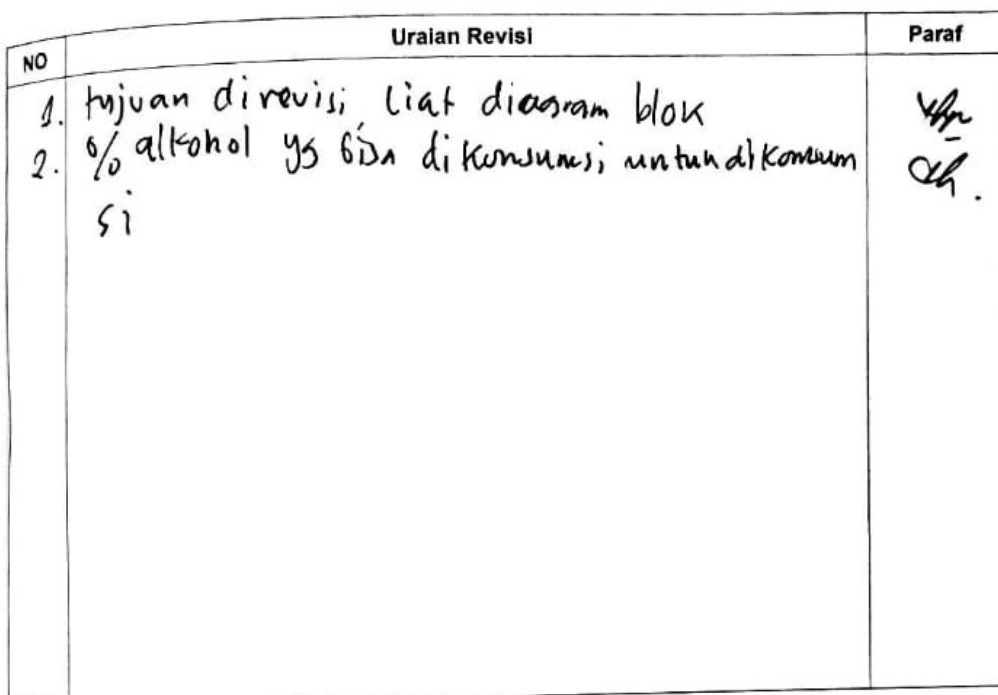 NO Uraian Revisi Paraf
1. tujuan direvisi, liat diagram blok
2. % alkohol yg bisa dikonsumsi untuk dikonsum
si